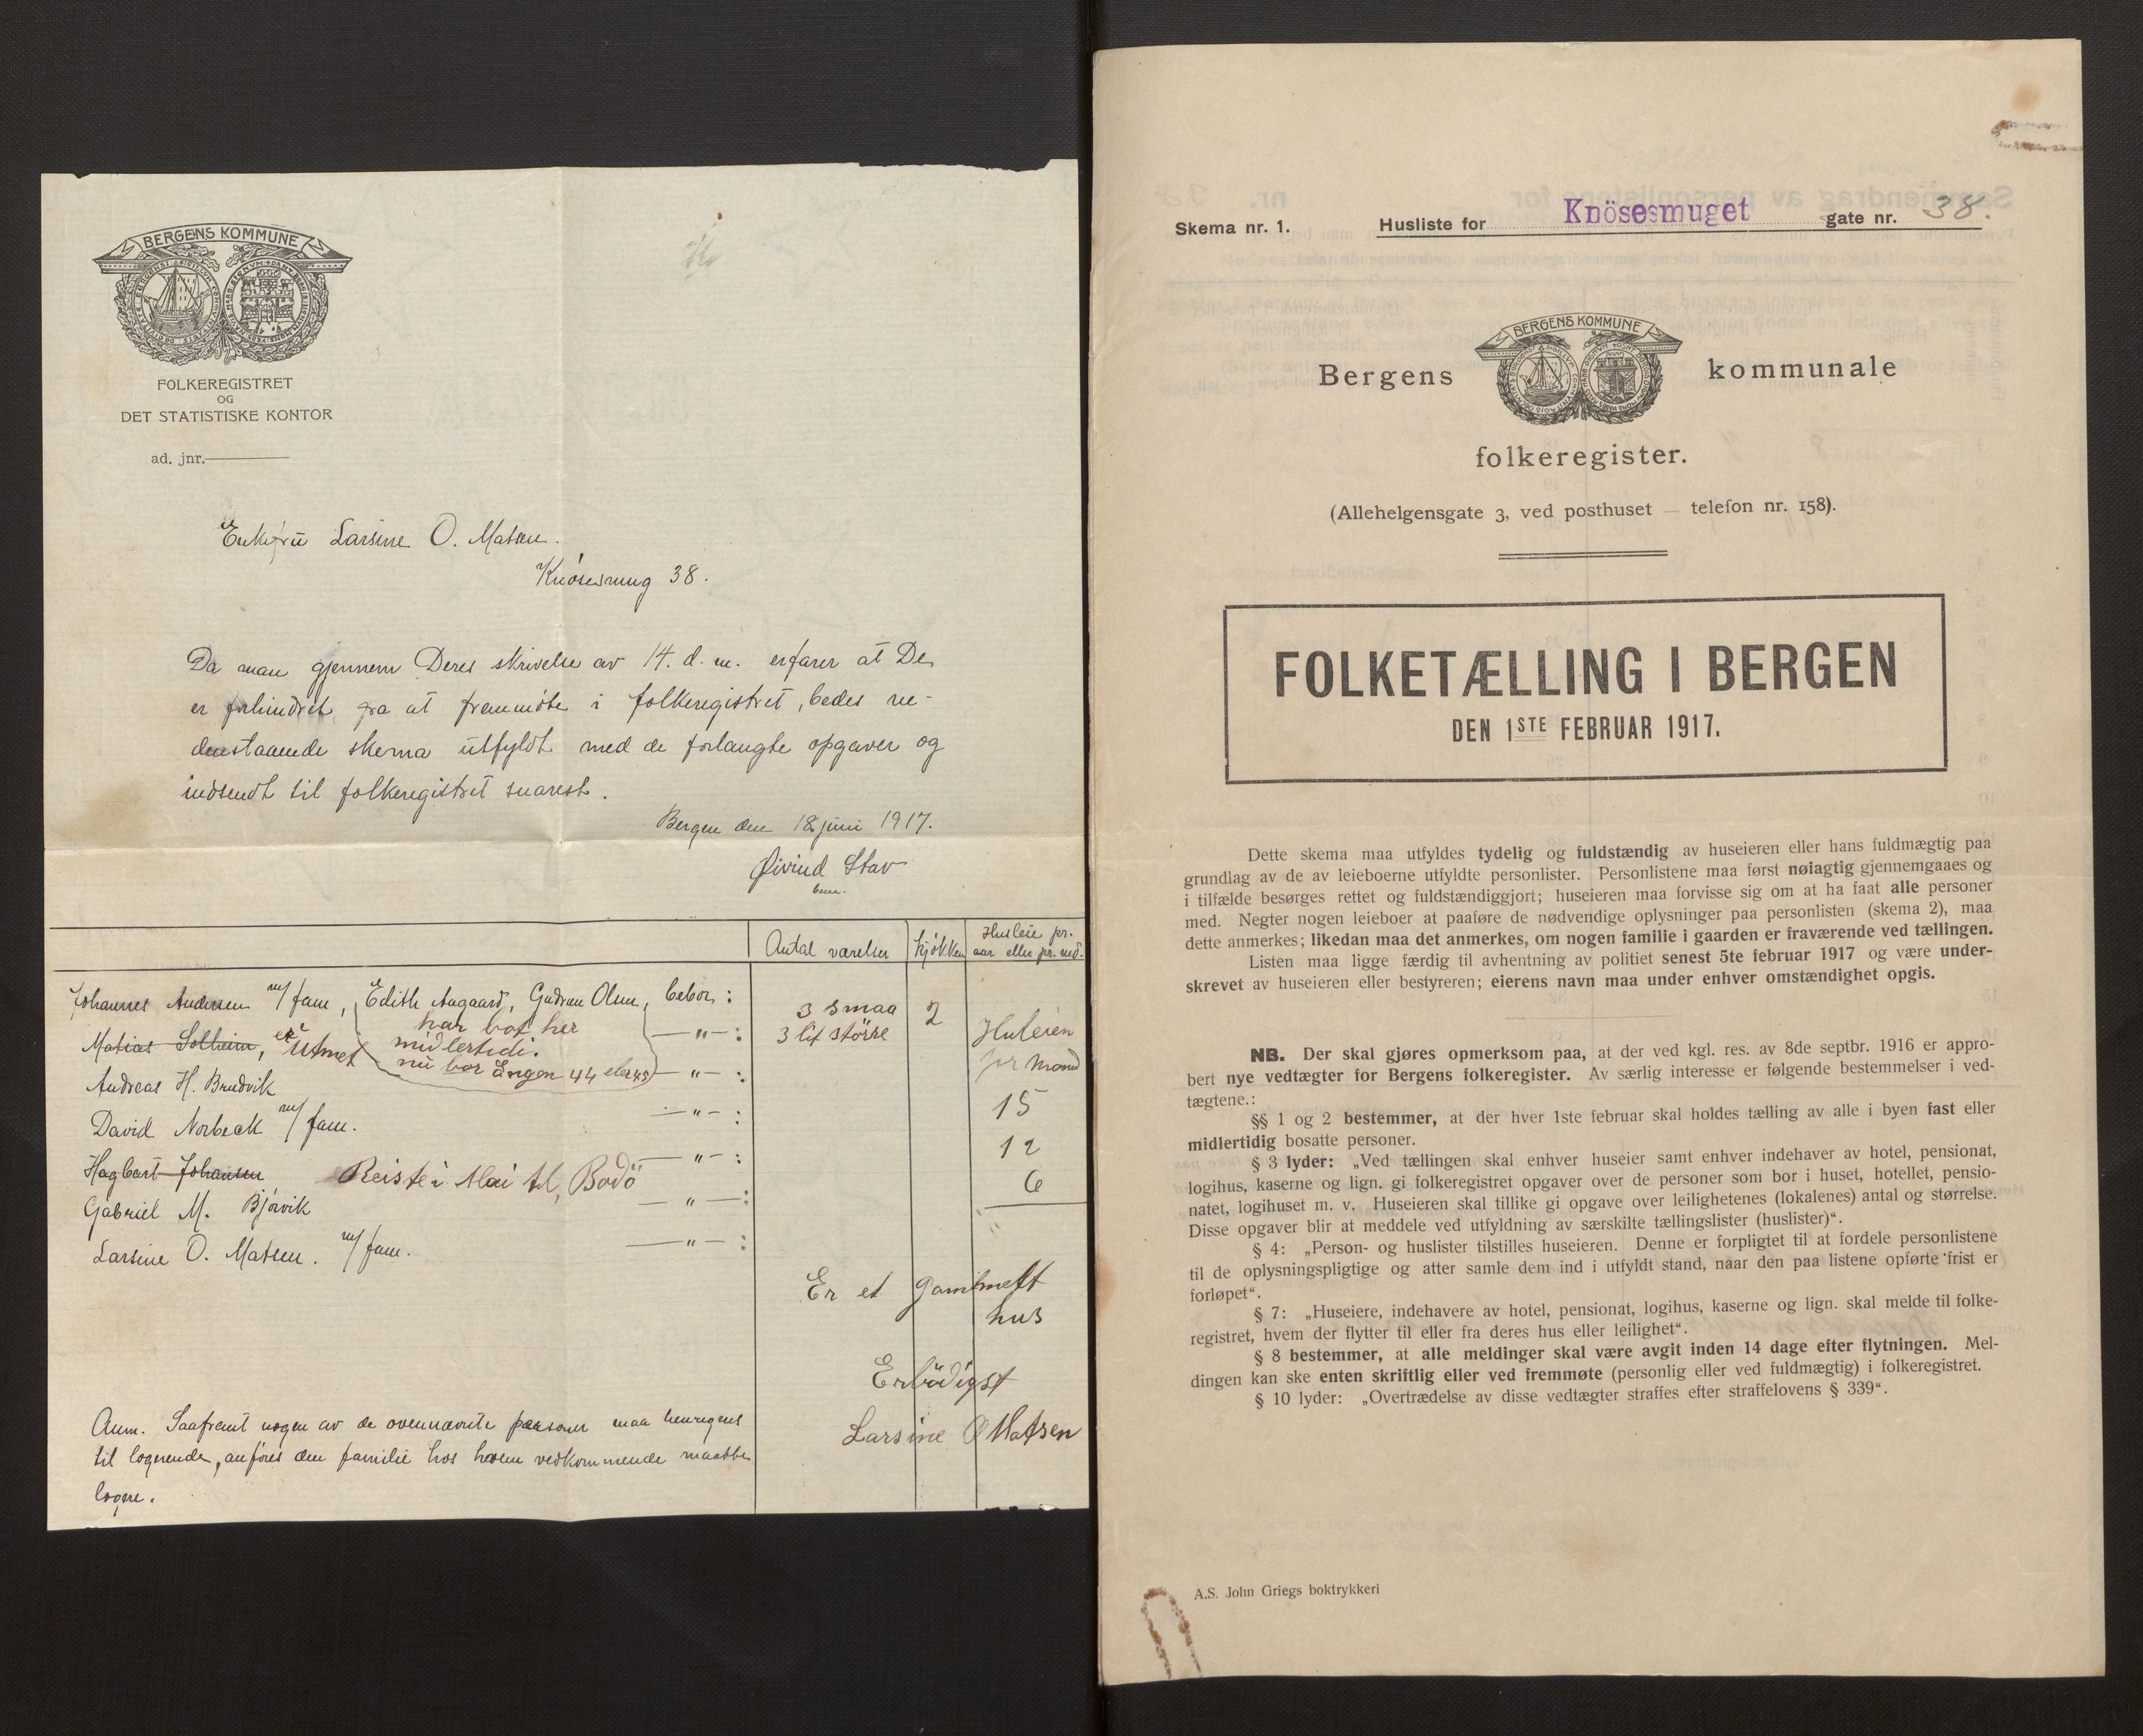 BERGENS KOMMUNE
FOLKEREGISTRET
OG
DET STATISTISKE KONTOR
ad. jnr.
Enkefru Larsine O. Matsen.
Knösesmug 38.
Da man gjennem Deres skrivelse av 14. d. m. erfarer at De
er forhindret fra at fremmöte i folkeregistret, bedes ne-
denstaaende skema utfyldt med de forlangte opgaver og
indsendt til folkeregistret snarest.
Bergen den 18 juni 1917.
Øivind Stav
Antal værelser kjökken Husleie pr.
aar eller pr. md.
Johannes Andersen m/fam, Edith Aagaard, Gudrun Olsen, bebor:
3 smaa 2
har bot her
Matias Solheim, er utmel midlertidi. — " — : 3 lit större Huleien
nu bor Engen 44 eler 42 — " — : pr mond
Andreas H. Brudvik
15
David Norbeck m/fam. — " — :
12
Hagbart Johansen Reiste i Mai til, Bodö — " — :
6
Gabriel M. Bjørvik — " — :
Larsine O. Matsen. m/fam. — " — :
Er et gammelt
hus
Erbödigst
Larsine O Matsen
Anm. Saafremt nogen av de ovennævnte personer maa henregnes
til logerende, anföres den familie hos hvem vedkommende maatte
logere.
Skema nr. 1. Husliste for Knösesmuget gate nr. 38.
Bergens BERGENS KOMMUNE kommunale
folkeregister.
(Allehelgensgate 3, ved posthuset — telefon nr. 158).
FOLKETÆLLING I BERGEN
DEN 1STE FEBRUAR 1917.
Dette skema maa utfyldes tydelig og fuldstændig av huseieren eller hans fuldmægtig paa
grundlag av de av leieboerne utfyldte personlister. Personlistene maa først nøiagtig gjennemgaaes og
i tilfælde besørges rettet og fuldstændiggjort; huseieren maa forvisse sig om at ha faat alle personer
med. Negter nogen leieboer at paaføre de nødvendige oplysninger paa personlisten (skema 2), maa
dette anmerkes; likedan maa det anmerkes, om nogen familie i gaarden er fraværende ved tællingen.
Listen maa ligge færdig til avhentning av politiet senest 5te februar 1917 og være under-
skrevet av huseieren eller bestyreren; eierens navn maa under enhver omstændighet opgis.
NB. Der skal gjøres opmerksom paa, at der ved kgl. res. av 8de septbr. 1916 er appro-
bert nye vedtægter for Bergens folkeregister. Av særlig interesse er følgende bestemmelser i ved-
tægtene.:
§§ 1 og 2 bestemmer, at der hver 1ste februar skal holdes tælling av alle i byen fast eller
midlertidig bosatte personer.
§ 3 lyder: „Ved tællingen skal enhver huseier samt enhver indehaver av hotel, pensionat,
logihus, kaserne og lign. gi folkeregistret opgaver over de personer som bor i huset, hotellet, pensio-
natet, logihuset m. v. Huseieren skal tillike gi opgave over leilighetenes (lokalenes) antal og størrelse.
Disse opgaver blir at meddele ved utfyldning av særskilte tællingslister (huslister)“.
§ 4: „Person- og huslister tilstilles huseieren. Denne er forpligtet til at fordele personlistene
til de oplysningspligtige og atter samle dem ind i utfyldt stand, naar den paa listene opførte frist er
forløpet“.
§ 7: „Huseiere, indehavere av hotel, pensionat, logihus, kaserne og lign. skal melde til folke-
registret, hvem der flytter til eller fra deres hus eller leilighet“.
§ 8 bestemmer, at alle meldinger skal være avgit inden 14 dage efter flytningen. Mel-
dingen kan ske enten skriftlig eller ved fremmøte (personlig eller ved fuldmægtig) i folkeregistret.
§ 10 lyder: „Overtrædelse av disse vedtægter straffes efter straffelovens § 339“.
A.S. John Griegs boktrykkeri